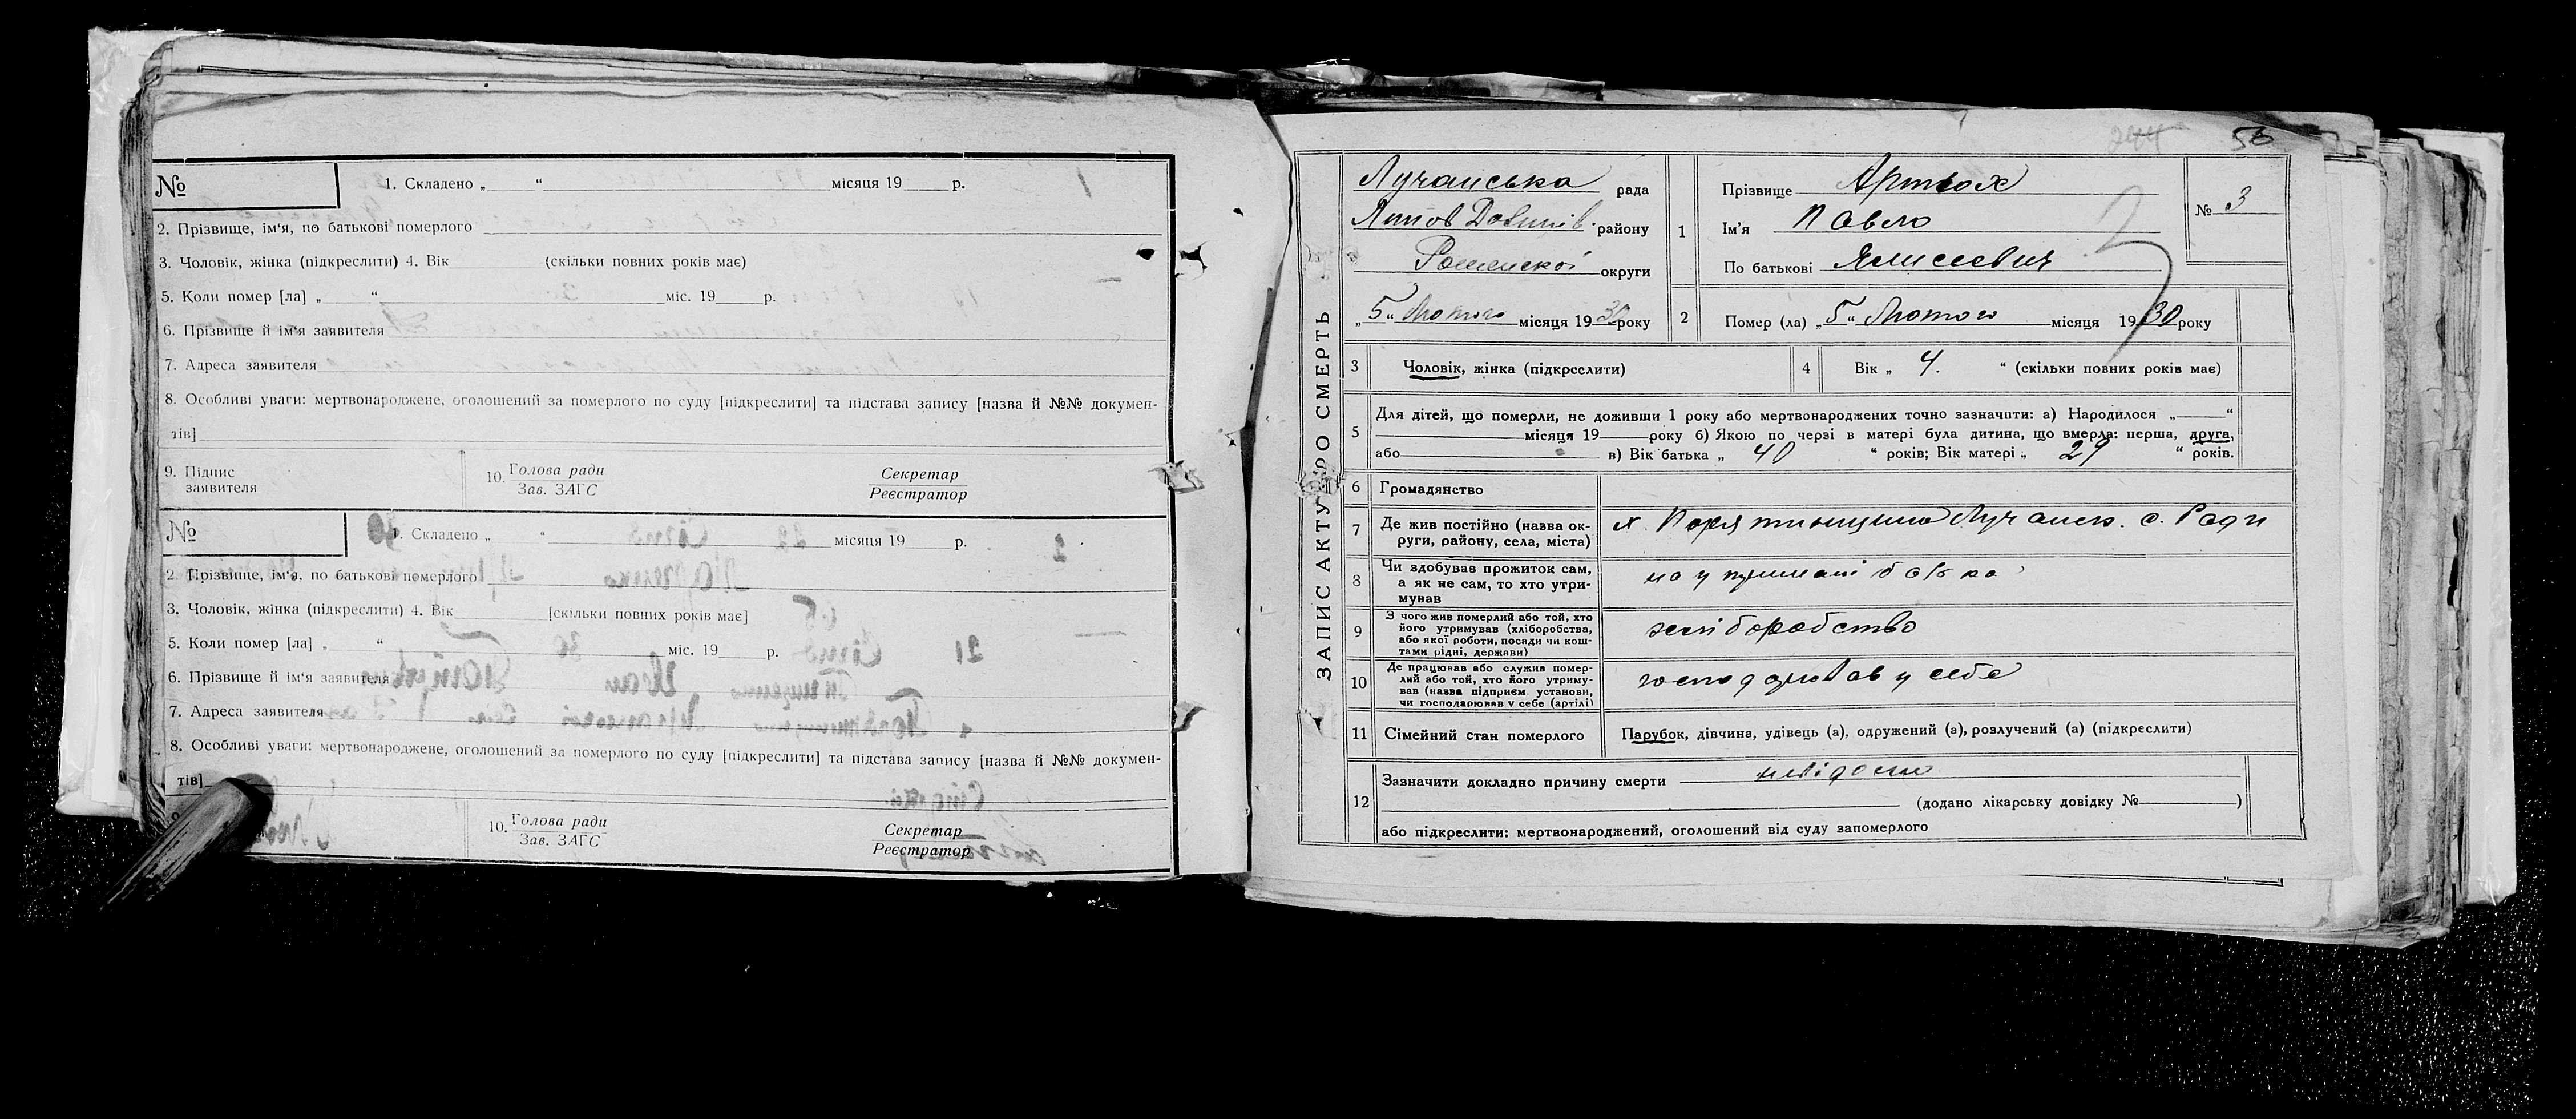 № 1. Складено „ “ місяця 19 р.
2. Прізвище, ім‘я, по батькові померлого
3. Чоловік, жінка (підкреслити) 4. Вік (скільки повних років має)
5. Коли помер [ла] „ “ міс. 19 р.
6. Прізвище й ім‘я заявителя
7. Адреса заявителя
8. Особливі уваги: мертвонароджене, оголошений за померлого по суду [підкреслити] та підстава запису [назва й №№ докумен-
тів]
9. Підпис заявителя 10. Голова ради Зав. ЗАГС Секретар Реєстратор
№ 1. Складено „ “ місяця 19 р.
2. Прізвище, ім‘я, по батькові померлого
3. Чоловік, жінка (підкреслити) 4. Вік [скільки повних років має]
5. Коли помер [ла] „ “ міс. 19 р.
6. Прізвище й ім‘я заявителя
7. Адреса заявителя
8. Особливі уваги: мертвонароджене, оголошений за померлого по суду [підкреслити] та підстава запису [назва й №№ докумен-
тів]
10. Голова ради Зав. ЗАГС Секретар Реєстратор
244 56
ЗАПИС АКТУ ПРО СМЕРТЬ
Лучанська рада
Липов Долинів. району
Роменской округи
„5“ Лютого місяця 1930 року
1 Прізвище Артюх
Ім'я Павло
По батькові Ялисеевич
№ 3
2 Помер (ла) „5“ Лютого місяця 1930 року
3 Чоловік, жінка (підкреслити)
4 Вік „ 4. “ (скільки повних років має)
5 Для дітей, що померли, не доживши 1 року або мертвонароджених точно зазначити: а) Народилося „ “
місяця 19 року б) Якою по черзі в матері була дитина, що вмерла: перша, друга,
або в) Вік батька „ 40 “ років; Вік матері „ 29 “ років.
6 Громадянство
7 Де жив постійно (назва ок-
руги, району, села, міста)
х. Поряtинщина Лучанск. с. Ради
8 Чи здобував прожиток сам,
а як не сам, то хто утри-
мував
на утриманні батька
9 З чого жив померлий або той, хто
його утримував (хліборобства,
або якої роботи, посади чи кош-
тами рідні, держави)
хліборобство
10 Де працював або служив помер-
лий або той, хто його утриму-
вав (назва підприєм. установи,
чи господарював у себе (артілі)
господарював у себе
11 Сімейний стан померлого Парубок, дівчина, удівець (а), одружений (а), розлучений (а) (підкреслити)
12 Зазначити докладно причину смерти невідомо
(додано лікарську довідку № )
або підкреслити: мертвонароджений, оголошений від суду запомерлого